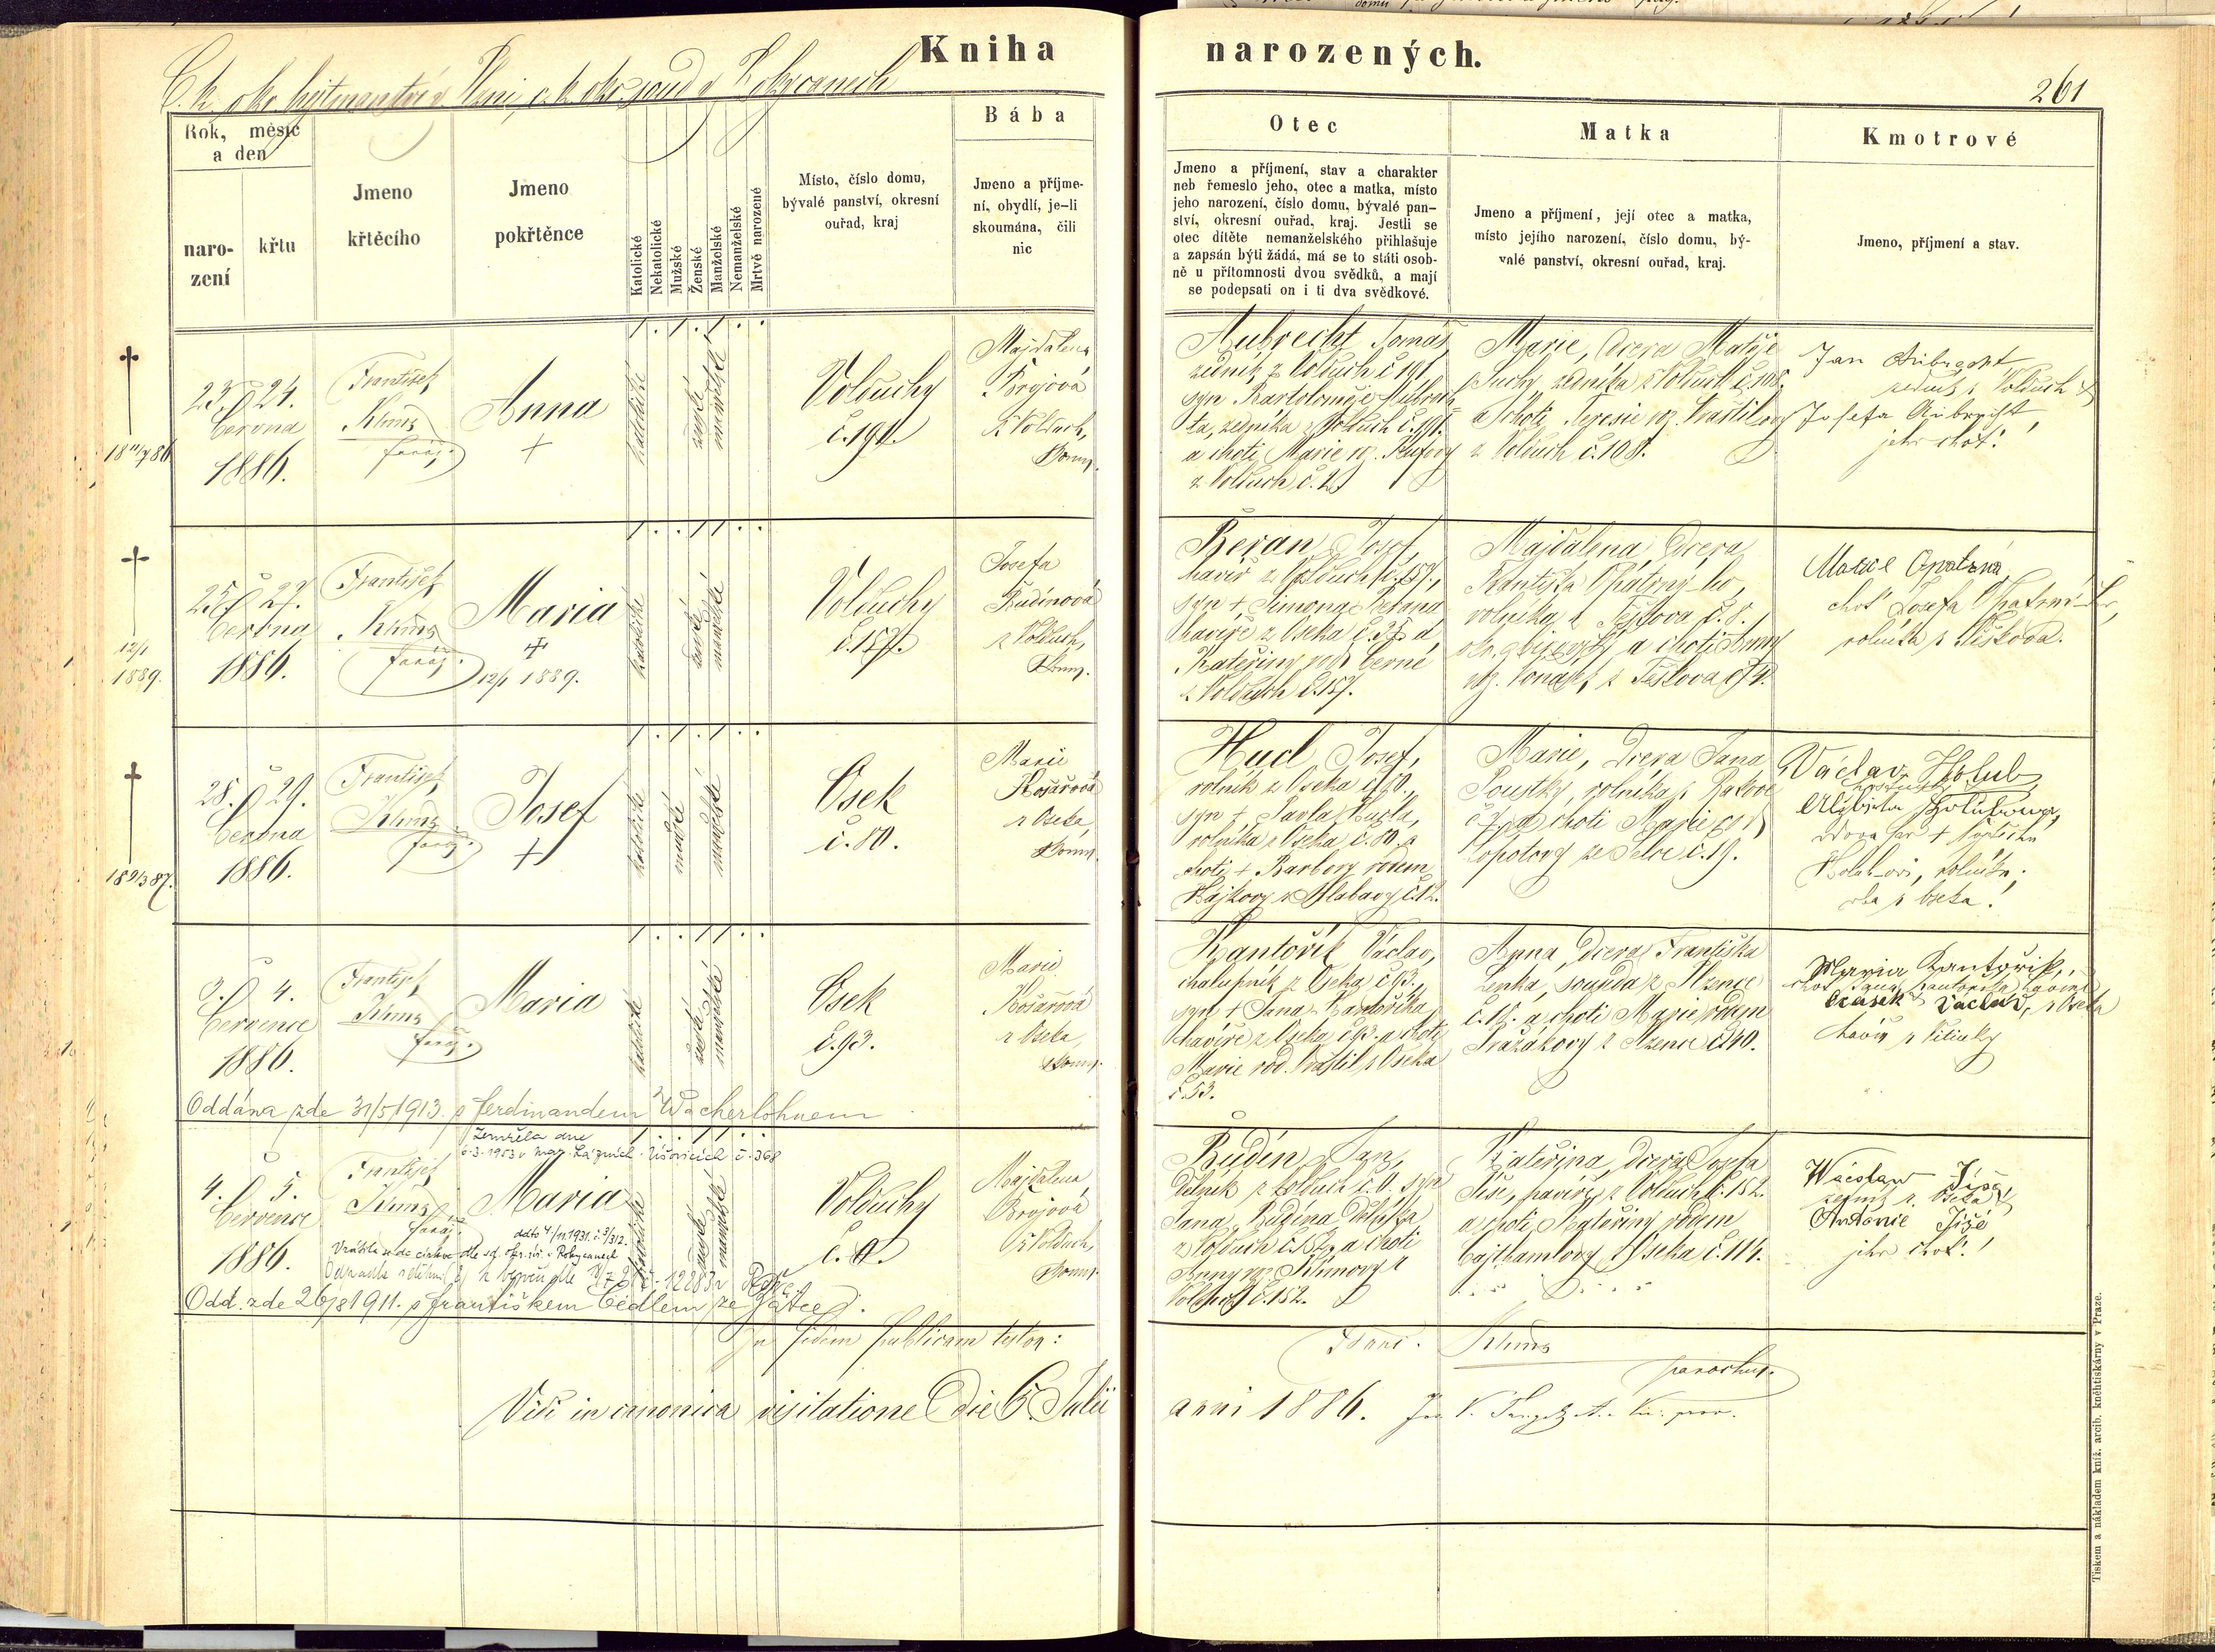 Kniha narozených.
C. k. okr. hejtmanství v Plzni, c. k. okr. soud v Rokycanech
261
Rok, měsíc
a den
naro-
zení
křtu
Jmeno
křtěcího
Jmeno
pokřtěnce
Katolické
Nekatolické
Mužské
Ženské
Manželské
Nemanželské
Mrtvě narozené
Místo, číslo domu,
bývalé panství, okresní
ouřad, kraj
Bába
Jmeno a příjme-
ní, obydlí, je-li
skoumána, čili
nic
Otec
Jmeno a příjmení, stav a charakter
neb řemeslo jeho, otec a matka, místo
jeho narození, číslo domu, bývalé pan-
ství, okresní ouřad, kraj. Jestli se
otec dítěte nemanželského přihlašuje
a zapsán býti žádá, má se to státi osob-
ně u přítomnosti dvou svědků, a mají
se podepsati on i ti dva svědkové.
Matka
Jmeno a příjmení, její otec a matka,
místo jejího narození, číslo domu, bý-
valé panství, okresní ouřad, kraj.
Kmotrové
Jmeno, příjmení a stav.
23. 24.
června
1886.
František
Klima
farář.
Anna
katolické
ženské
manželské
Volduchy
č. 191.
Majdalena
Brojová
z Volduch,
zkoum.
Aubrecht Tomáš,
zedník z Volduch č 191,
syn Bartoloměje Aubrech
ta, zedníka z Volduch č. 191.
a choti Marie
z Volduch č. 2.
Marie, dcera Matěje
Suchý, zedníka z Volduch č. 108.
a choti Terezie roz.
z Volduch č. 108.
Jan Aubrecht
zedník z Volduch
Josefa Aubrecht,
jeho choť.
25. 27.
června
1886.
12/1
1889.
František
Klima
farář.
Maria
12/1 1889.
katolické
ženské
manželské
Volduchy
č. 157.
Josefa
Rudinová
z Volduch,
zkoum.
Beran Josef,
havíř z Volduch č. 157.,
syn † Šimona Berana
havíře z Oseka č. 37 a
Kateřiny rod. Černé
z Volduch č. 157.
Majdalena, dcera
Františka Opatrný-ho,
rolníka z Těškova č. 8.
okr. zbirovský a choti Anny
roz. z Těškova č 4.
Marie Opatrná
choť Josefa Opatrné-ho,
rolníka z Těškova.
28. 29.
června
1886.
František
Klima
farář.
Josef
katolické
mužské
manželské
Osek
č. 80.
Marie
Košařová
z Oseka,
zkoum.
Hucl Josef,
rolník z Oseka č 80.,
syn † Pavla Hucla,
rolníka z Oseka č. 80. a
choti † Barbory rodem
Hájkovy z Hlohovy č. 12.
Marie, dcera Jana
Poustky, rolníka z Rakové
č 7. a choti Marie roz.
Lopotovy ze Selce č. 19.
Václav Holub,
Alžbieta Holubowa,
vdova po †
Holub-ovi, rolníka;
oba z Oseka.
3. 4.
července
1886.
František
Klima
farář.
Maria
katolické
ženské
manželské
Osek
č. 93.
Marie
Košařová
z Oseka,
zkoum.
Kantořík Václav,
chalupník z Oseka č 93.,
syn † Jana Kantoříka,
havíře z Oseka č 93. a choti
Marie rod. z Oseka
č. 53.
Anna, dcera Františka
Ženka, souseda z Mzence
č. 18. a choti Marie rodem
Pražákovy z Mzence č. 40.
Maria Kantořik,
choť Jana Kantoříka, havíře
Czásek Václav, z Oseka
havíř z
Oddána zde 31/5 1913. s Ferdinandem Wacherlohnem
Zemřela dne
6.3.1953 v Mar. Lázních - Úšovicích č. 368
4. 5.
července
1886.
František
Klima
farář.
Maria
katolické
ženské
manželské
Volduchy
č. 0.
Majdalena
Brojová
z Volduch,
zkoum.
Budín Jan,
dělník z Volduch č. 0. syn
Jana Budína dělníka
z Volduch č. 152. a choti
Anny roz. Klimovy z
Volduch č. 152.
Kateřina, dcera Josefa
Jíše, havíře z Volduch č. 152.
a choti Kateřiny rodem
Cajthamlovy z Oseka č. 114.
Wácslaw Jíše
zedník z Oseka
Antonie Jíše
jeho choť.
ddto 4/11 1931. č 3/312.
Vrátila se do církve dle sd. okr. úř. v Rokycanech
Odd. zde 26/8 1911. s Františkem Cédlem ze Žatce.
In fidem publicam testor:
Franc. Klima
parochus.
Vidi in canonica visitatione die 6. Julii
anni 1886.
Tiskem a nákladem kníž. arcib. kněhtiskárny v Praze.